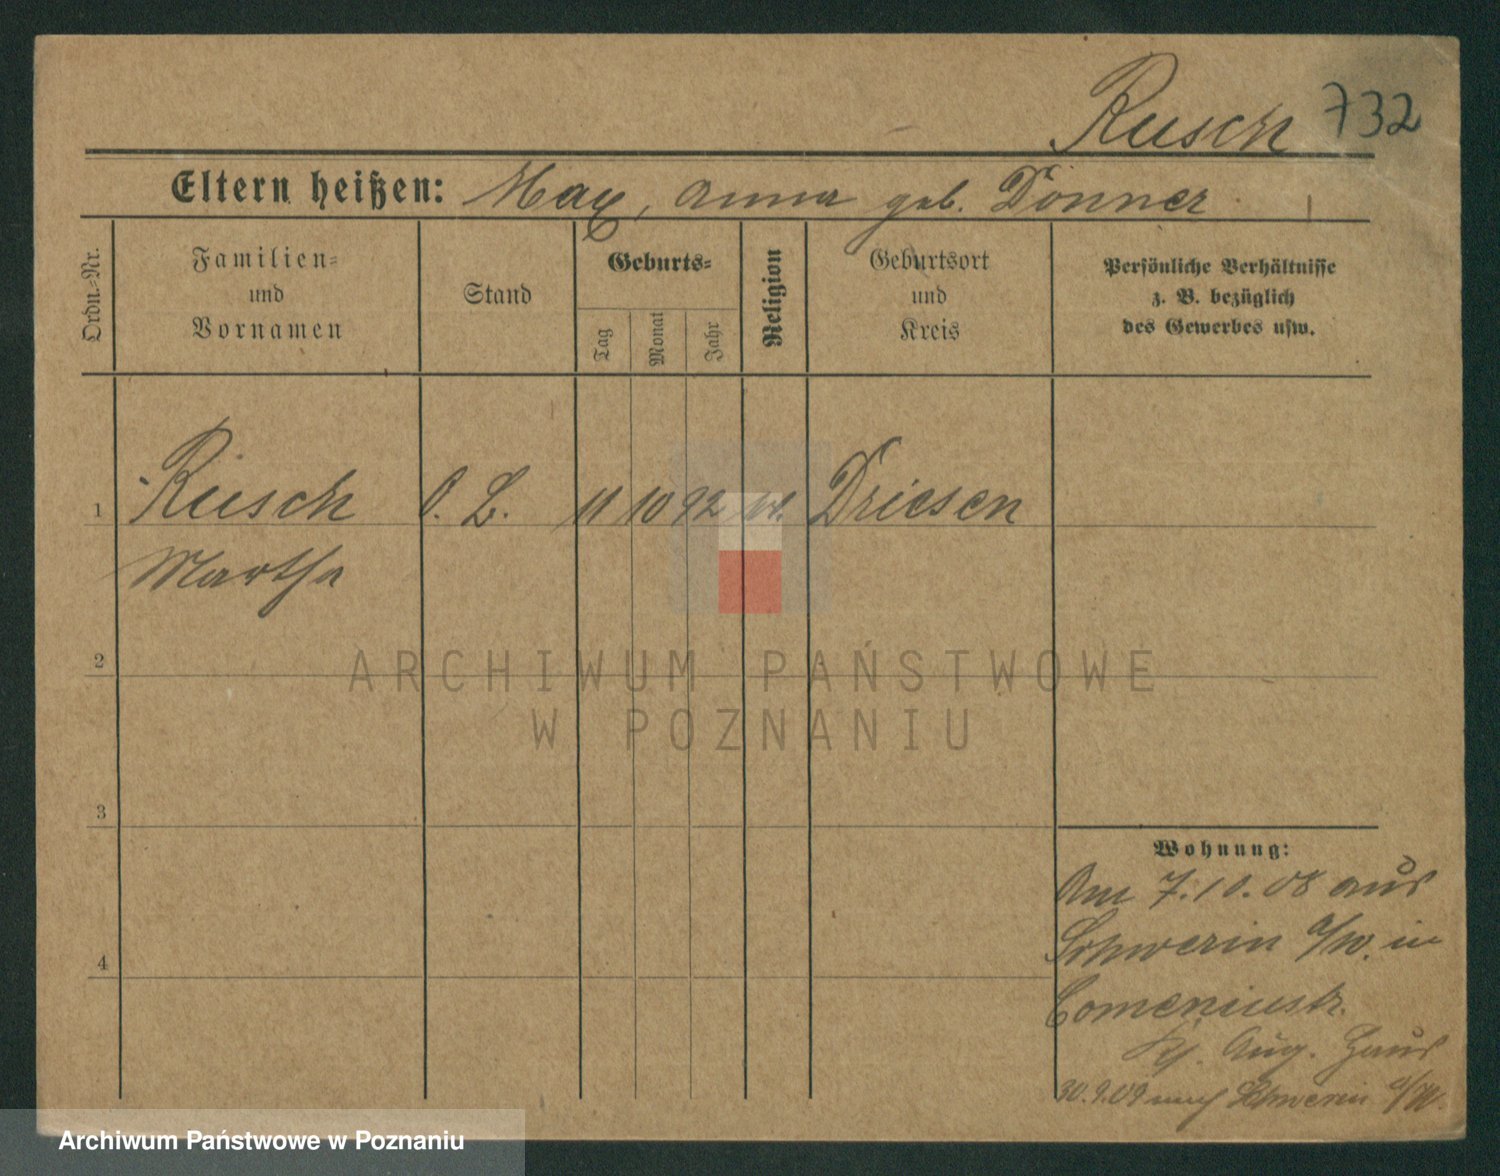 Rusch 732
Eltern heißen: Max, Anna geb. Donner
Ordn.=Nr.
Familien=
und
Vornamen
Stand
Geburts=
Tag
Monat
Jahr
Religion
Geburtsort
und
Kreis
Persönliche Verhältnisse
z. B. bezüglich
des Gewerbes usw.
1 Rusch O. L. 11 10 92 Driesen
Martha
2
3
4
Wohnung:
Am 7.10.08 aus
Schwerin a/W. in
Comeniusstr.
Aug. Haus
30.9.09 nach Schwerin a/W.
ARCHIWUM PAŃSTWOWE
W POZNANIU
Archiwum Państwowe w Poznaniu